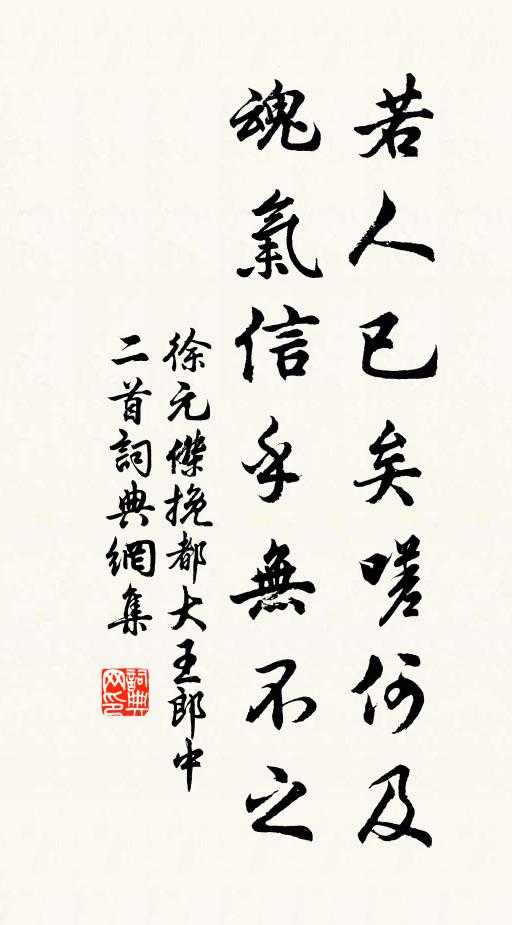 若人已矣嗟何及
魂氣信乎無不之
徐元傑挽都大王郎中
二首詞典網集
詞典
网印